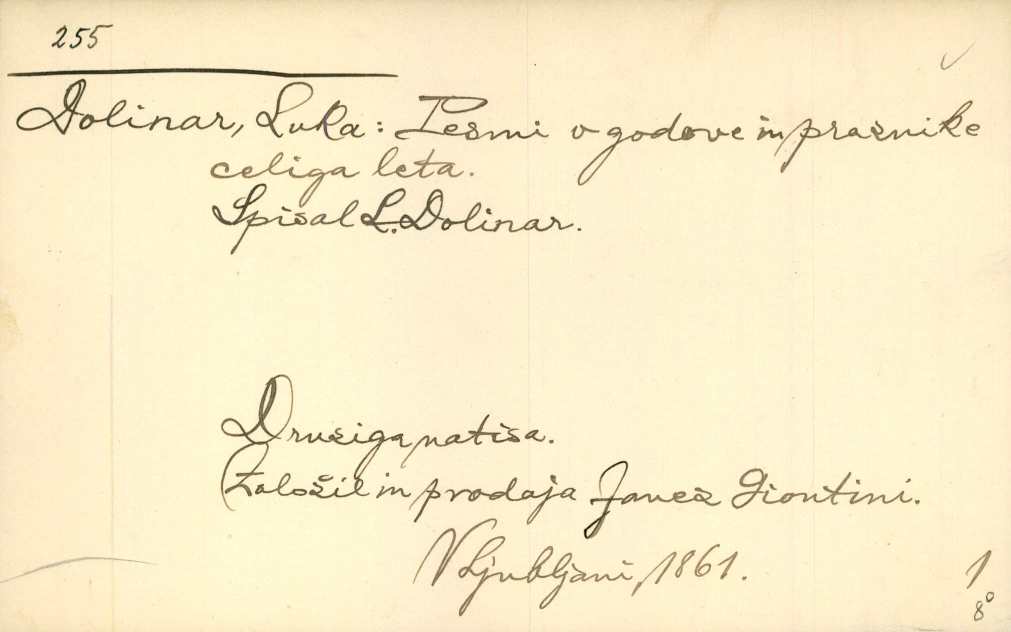 255
Dolinar, Luka: Pesmi v godove in praznike
celiga leta.
Spisal L. Dolinar.
Drusiga natisa.
Založil in prodaja Janez Giontini.
V Ljubljani, 1861.
1
8°